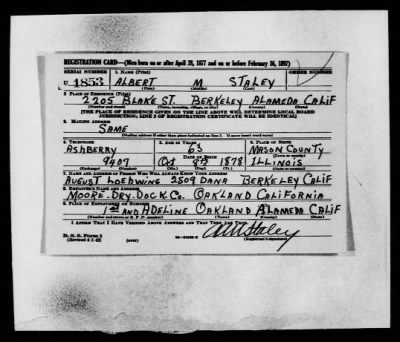 REGISTRATION CARD—(Men born on or after April 28, 1877 and on or before February 16, 1897)
SERIAL NUMBER 1. NAME (Print) ORDER NUMBER
U 1853 ALBERT M STALEY
(First) (Middle) (Last)
2. PLACE OF RESIDENCE (Print)
2205 BLAKE ST. BERKELEY ALAMEDA CALIF
(Number and street) (Town, township, village, or city) (County) (State)
[THE PLACE OF RESIDENCE GIVEN ON THE LINE ABOVE WILL DETERMINE LOCAL BOARD
JURISDICTION; LINE 2 OF REGISTRATION CERTIFICATE WILL BE IDENTICAL]
3. MAILING ADDRESS
SAME
[Mailing address if other than place indicated on line 2. If same insert word same]
4. TELEPHONE 5. AGE IN YEARS 6. PLACE OF BIRTH
ASHBERRY 63 MASON COUNTY
DATE OF BIRTH (Town or county)
9407 Oct 1878 ILLINOIS
(Exchange) (Number) (Mo.) (Day) (Yr.) (State or country)
7. NAME AND ADDRESS OF PERSON WHO WILL ALWAYS KNOW YOUR ADDRESS
AUGUST LOEDWING 2509 DANA BERKELEY CALIF
8. EMPLOYER'S NAME AND ADDRESS
MOORE-DRY-DOCK CO. OAKLAND CALIFORNIA
9. PLACE OF EMPLOYMENT OR BUSINESS
1st AND ADELINE OAKLAND ALAMEDA CALIF
(Number and street or R. F. D. number) (Town) (County) (State)
I AFFIRM THAT I HAVE VERIFIED ABOVE ANSWERS AND THAT THEY ARE TRUE.
D. S. S. Form 1
(Revised 4-1-42) (over) A M Staley
(Registrant's signature)